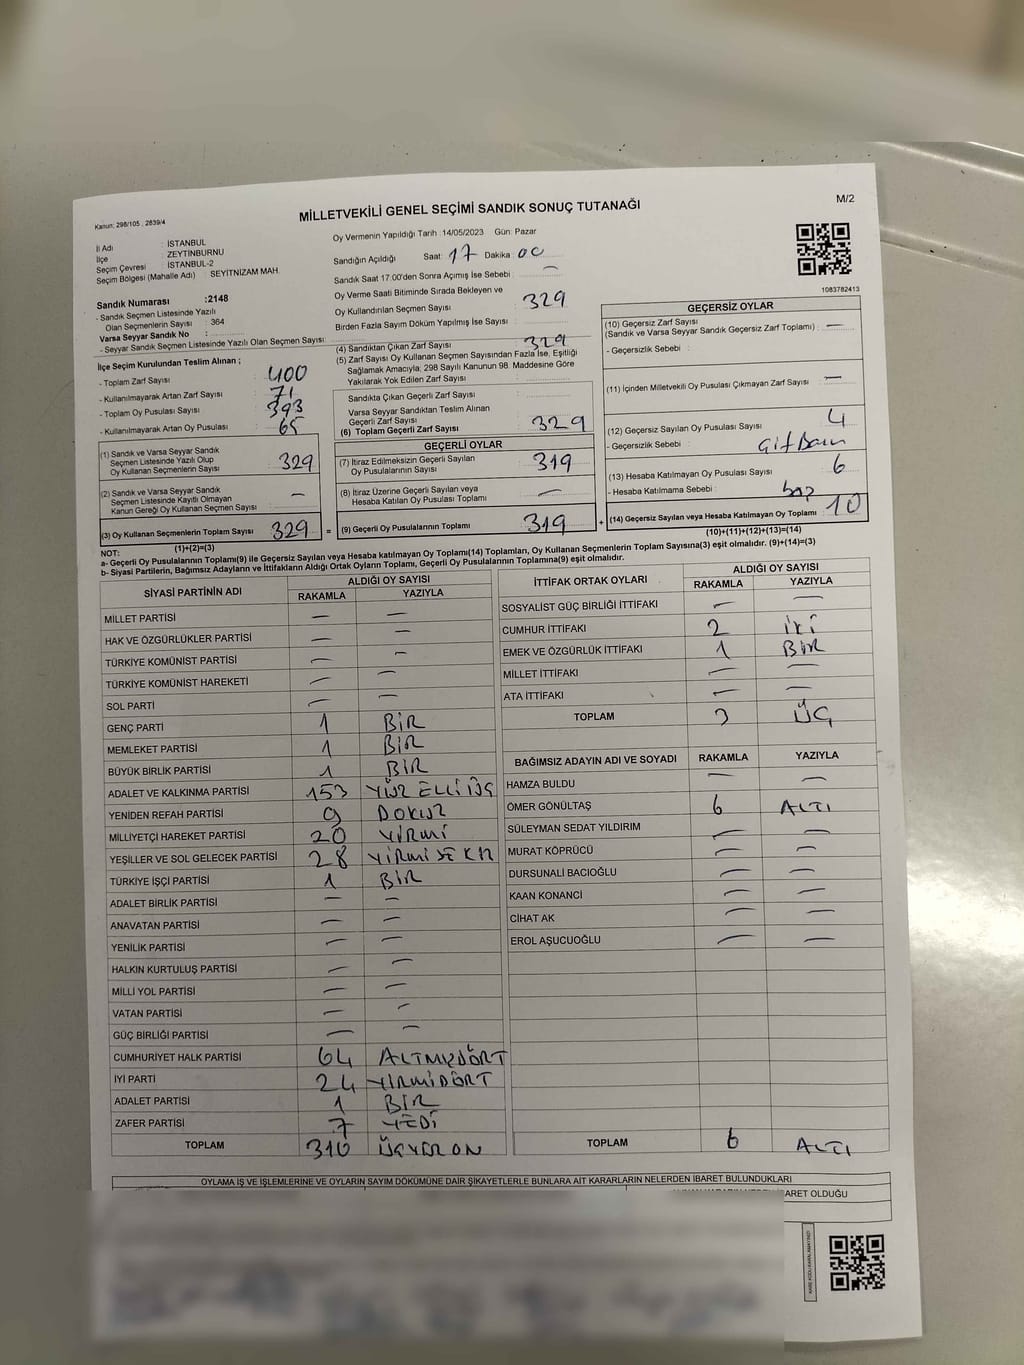 M/2
Kanun: 298/105 , 2839/4
MİLLETVEKİLİ GENEL SEÇİMİ SANDIK SONUÇ TUTANAĞI
İl Adı : İSTANBUL
İlçe : ZEYTİNBURNU
Seçim Çevresi : İSTANBUL-2
Seçim Bölgesi (Mahalle Adı) : SEYİTNİZAM MAH.
Sandık Numarası :2148
- Sandık Seçmen Listesinde Yazılı
Olan Seçmenlerin Sayısı : 364
Varsa Seyyar Sandık No :
- Seyyar Sandık Seçmen Listesinde Yazılı Olan Seçmen Sayısı:
İlçe Seçim Kurulundan Teslim Alınan ;
- Toplam Zarf Sayısı 400
- Kullanılmayarak Artan Zarf Sayısı 71
- Toplam Oy Pusulası Sayısı 393
- Kullanılmayarak Artan Oy Pusulası 65
(1) Sandık ve Varsa Seyyar Sandık
Seçmen Listesinde Yazılı Olup
Oy Kullanan Seçmenlerin Sayısı 329
(2) Sandık ve Varsa Seyyar Sandık
Seçmen Listesinde Kayıtlı Olmayan
Kanun Gereği Oy Kullanan Seçmen Sayısı : —
(3) Oy Kullanan Seçmenlerin Toplam Sayısı 329 =
(1)+(2)=(3)
Oy Vermenin Yapıldığı Tarih :14/05/2023 Gün: Pazar
Sandığın Açıldığı Saat: 17 Dakika: 00
Sandık Saat 17.00'den Sonra Açımış İse Sebebi : —
Oy Verme Saati Bitiminde Sırada Bekleyen ve
Oy Kullandırılan Seçmen Sayısı : 329
Birden Fazla Sayım Döküm Yapılmış İse Sayısı :
(4) Sandıktan Çıkan Zarf Sayısı : 329
(5) Zarf Sayısı Oy Kullanan Seçmen Sayısından Fazla İse, Eşitliği
Sağlamak Amacıyla, 298 Sayılı Kanunun 98. Maddesine Göre
Yakılarak Yok Edilen Zarf Sayısı :
Sandıkta Çıkan Geçerli Zarf Sayısı :
Varsa Seyyar Sandıktan Teslim Alınan
Geçerli Zarf Sayısı :
(6) Toplam Geçerli Zarf Sayısı 329
GEÇERLİ OYLAR
(7) İtiraz Edilmeksizin Geçerli Sayılan
Oy Pusulalarının Sayısı : 319
(8) İtiraz Üzerine Geçerli Sayılan veya
Hesaba Katılan Oy Pusulası Toplamı : —
(9) Geçerli Oy Pusulalarının Toplamı : 319 +
1083782413
GEÇERSİZ OYLAR
(10) Geçersiz Zarf Sayısı
(Sandık ve Varsa Seyyar Sandık Geçersiz Zarf Toplamı) : —
- Geçersizlik Sebebi :
(11) İçinden Milletvekili Oy Pusulası Çıkmayan Zarf Sayısı : —
(12) Geçersiz Sayılan Oy Pusulası Sayısı : 4
- Geçersizlik Sebebi :
(13) Hesaba Katılmayan Oy Pusulası Sayısı : 6
- Hesaba Katılmama Sebebi :
(14) Geçersiz Sayılan veya Hesaba Katılmayan Oy Toplamı : 10
(10)+(11)+(12)+(13)=(14)
NOT:
a- Geçerli Oy Pusulalarının Toplamı(9) ile Geçersiz Sayılan veya Hesaba katılmayan Oy Toplamı(14) Toplamları, Oy Kullanan Seçmenlerin Toplam Sayısına(3) eşit olmalıdır. (9)+(14)=(3)
b- Siyasi Partilerin, Bağımsız Adayların ve İttifakların Aldığı Ortak Oyların Toplamı, Geçerli Oy Pusulalarının Toplamına(9) eşit olmalıdır.
SİYASİ PARTİNİN ADI ALDIĞI OY SAYISI
RAKAMLA YAZIYLA
MİLLET PARTİSİ — —
HAK VE ÖZGÜRLÜKLER PARTİSİ — —
TÜRKİYE KOMÜNİST PARTİSİ — —
TÜRKİYE KOMÜNİST HAREKETİ — —
SOL PARTİ — —
GENÇ PARTİ 1 BİR
MEMLEKET PARTİSİ 1 BİR
BÜYÜK BİRLİK PARTİSİ 1 BİR
ADALET VE KALKINMA PARTİSİ 153 YÜZ ELLİ ÜÇ
YENİDEN REFAH PARTİSİ 9 DOKUZ
MİLLİYETÇİ HAREKET PARTİSİ 20 YİRMİ
YEŞİLLER VE SOL GELECEK PARTİSİ 28 YİRMİ SEKİZ
TÜRKİYE İŞÇİ PARTİSİ 1 BİR
ADALET BİRLİK PARTİSİ — —
ANAVATAN PARTİSİ — —
YENİLİK PARTİSİ — —
HALKIN KURTULUŞ PARTİSİ — —
MİLLİ YOL PARTİSİ — —
VATAN PARTİSİ — —
GÜÇ BİRLİĞİ PARTİSİ — —
CUMHURİYET HALK PARTİSİ 64 ALTMIŞDÖRT
İYİ PARTİ 24 YİRMİDÖRT
ADALET PARTİSİ 1 BİR
ZAFER PARTİSİ 7 YEDİ
TOPLAM 310 ÜÇYÜZ ON
İTTİFAK ORTAK OYLARI ALDIĞI OY SAYISI
RAKAMLA YAZIYLA
SOSYALİST GÜÇ BİRLİĞİ İTTİFAKI — —
CUMHUR İTTİFAKI 2 İKİ
EMEK VE ÖZGÜRLÜK İTTİFAKI 1 BİR
MİLLET İTTİFAKI — —
ATA İTTİFAKI — —
TOPLAM 3 ÜÇ
BAĞIMSIZ ADAYIN ADI VE SOYADI RAKAMLA YAZIYLA
HAMZA BULDU — —
ÖMER GÖNÜLTAŞ 6 ALTI
SÜLEYMAN SEDAT YILDIRIM — —
MURAT KÖPRÜCÜ — —
DURSUNALİ BACIOĞLU — —
KAAN KONANCİ — —
CİHAT AK — —
EROL AŞUCUOĞLU — —
TOPLAM 6 ALTI
OYLAMA İŞ VE İŞLEMLERİNE VE OYLARIN SAYIM DÖKÜMÜNE DAİR ŞİKAYETLERLE BUNLARA AİT KARARLARIN NELERDEN İBARET BULUNDUKLARI
BARET OLDUĞU